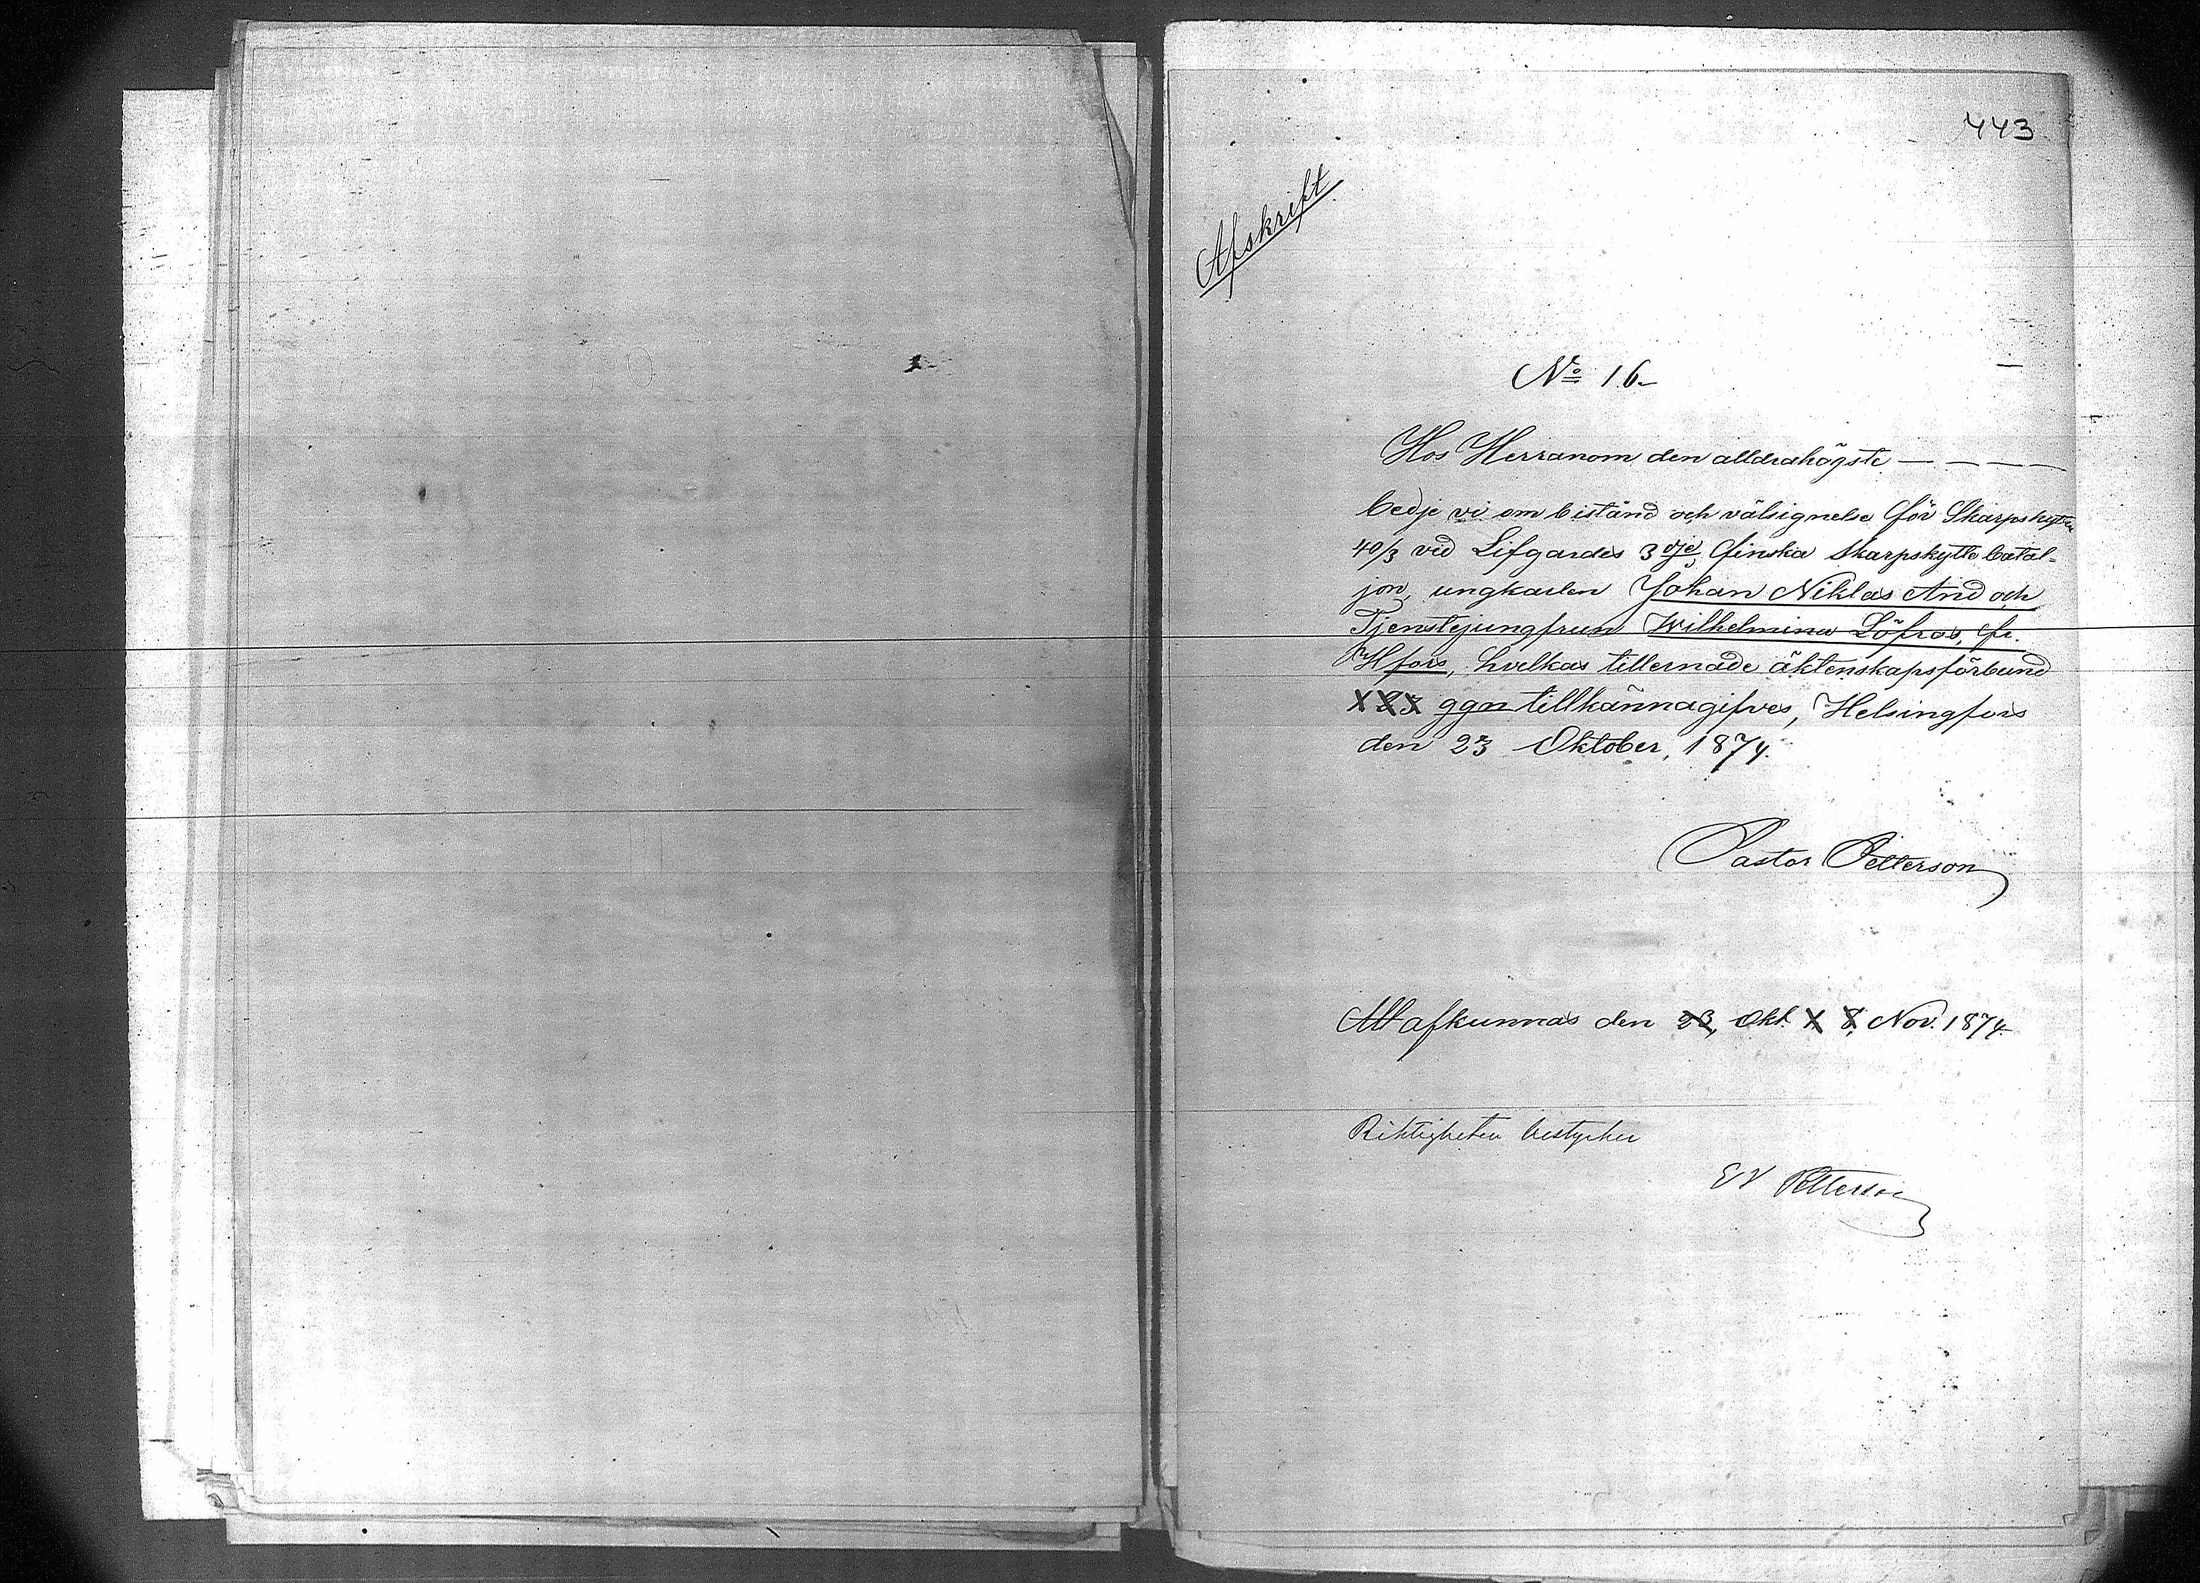 443
Afskrift
No 16
Hos Herranom den alldrahögste — — — —
bedje vi om bistånd och välsignelse för Skarpskytten
40/3 vid Lifgardes 3dje finska Skarpskytte batal=
jon, ungkarlen Johan Niklas And och
Tjenstejungfrun Wilhelmina Löfros, fr.
Hfors, hvilkas tillernade äktenskapsförbund
ggn tillkännagifves, Helsingfors
den 23 Oktober, 1874.
Pastor Petterson
Att afkunnas den 23, Okt. X 8, Nov. 1874
Riktigheten bestyrker
EV Petterson